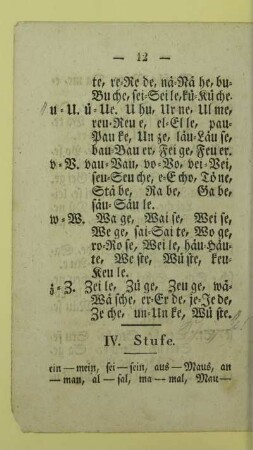 — 12 —
te, re-Re de, nä-Nä he, bu-
Bu che, sei-Sei le, kü-Kü che.
u-U. ü-Ue. U hu, Ur ne, Ul me,
reu-Reu e, el-El le, pau-
Pau ke, Un ze, läu-Läu se,
bau-Bau er, Fei ge, Feu er.
v-V. vau-Vau, vo-Vo, vei-Vei,
seu-Seu che, e-E cho, Tö ne,
Stä be, Ra be, Ga be,
säu-Säu le.
w-W. Wa ge, Wai se, Wei se,
We ge, sai-Sai te, Wo ge,
ro-Ro se, Wei le, häu-Häu-
te, We ste, Wü ste, keu-
Keu le.
z-Z. Zei le, Zü ge, Zeu ge, wä-
Wä sche, er-Er de, je-Je de,
Ze che, un-Un ke, Wü ste.
IV. Stufe.
ein — mein, sei — sein, aus — Maus, an
— man, al — sal, ma — mal, Mau —